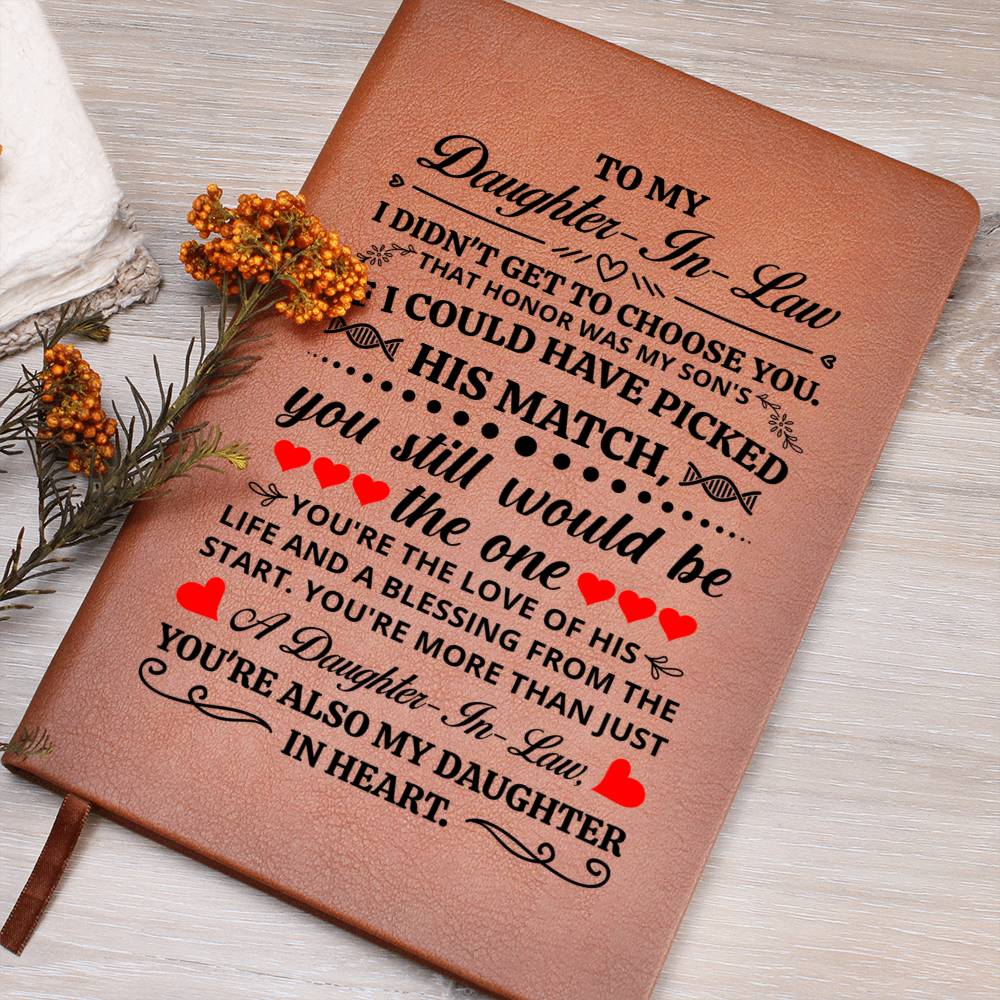 TO MY
Daughter-In-Law
I DIDN'T GET TO CHOOSE YOU.
THAT HONOR WAS MY SON'S
IF I COULD HAVE PICKED
HIS MATCH,
you still would be
the one
YOU'RE THE LOVE OF HIS
LIFE AND A BLESSING FROM THE
START. YOU'RE MORE THAN JUST
A Daughter-In-Law,
YOU'RE ALSO MY DAUGHTER
IN HEART.